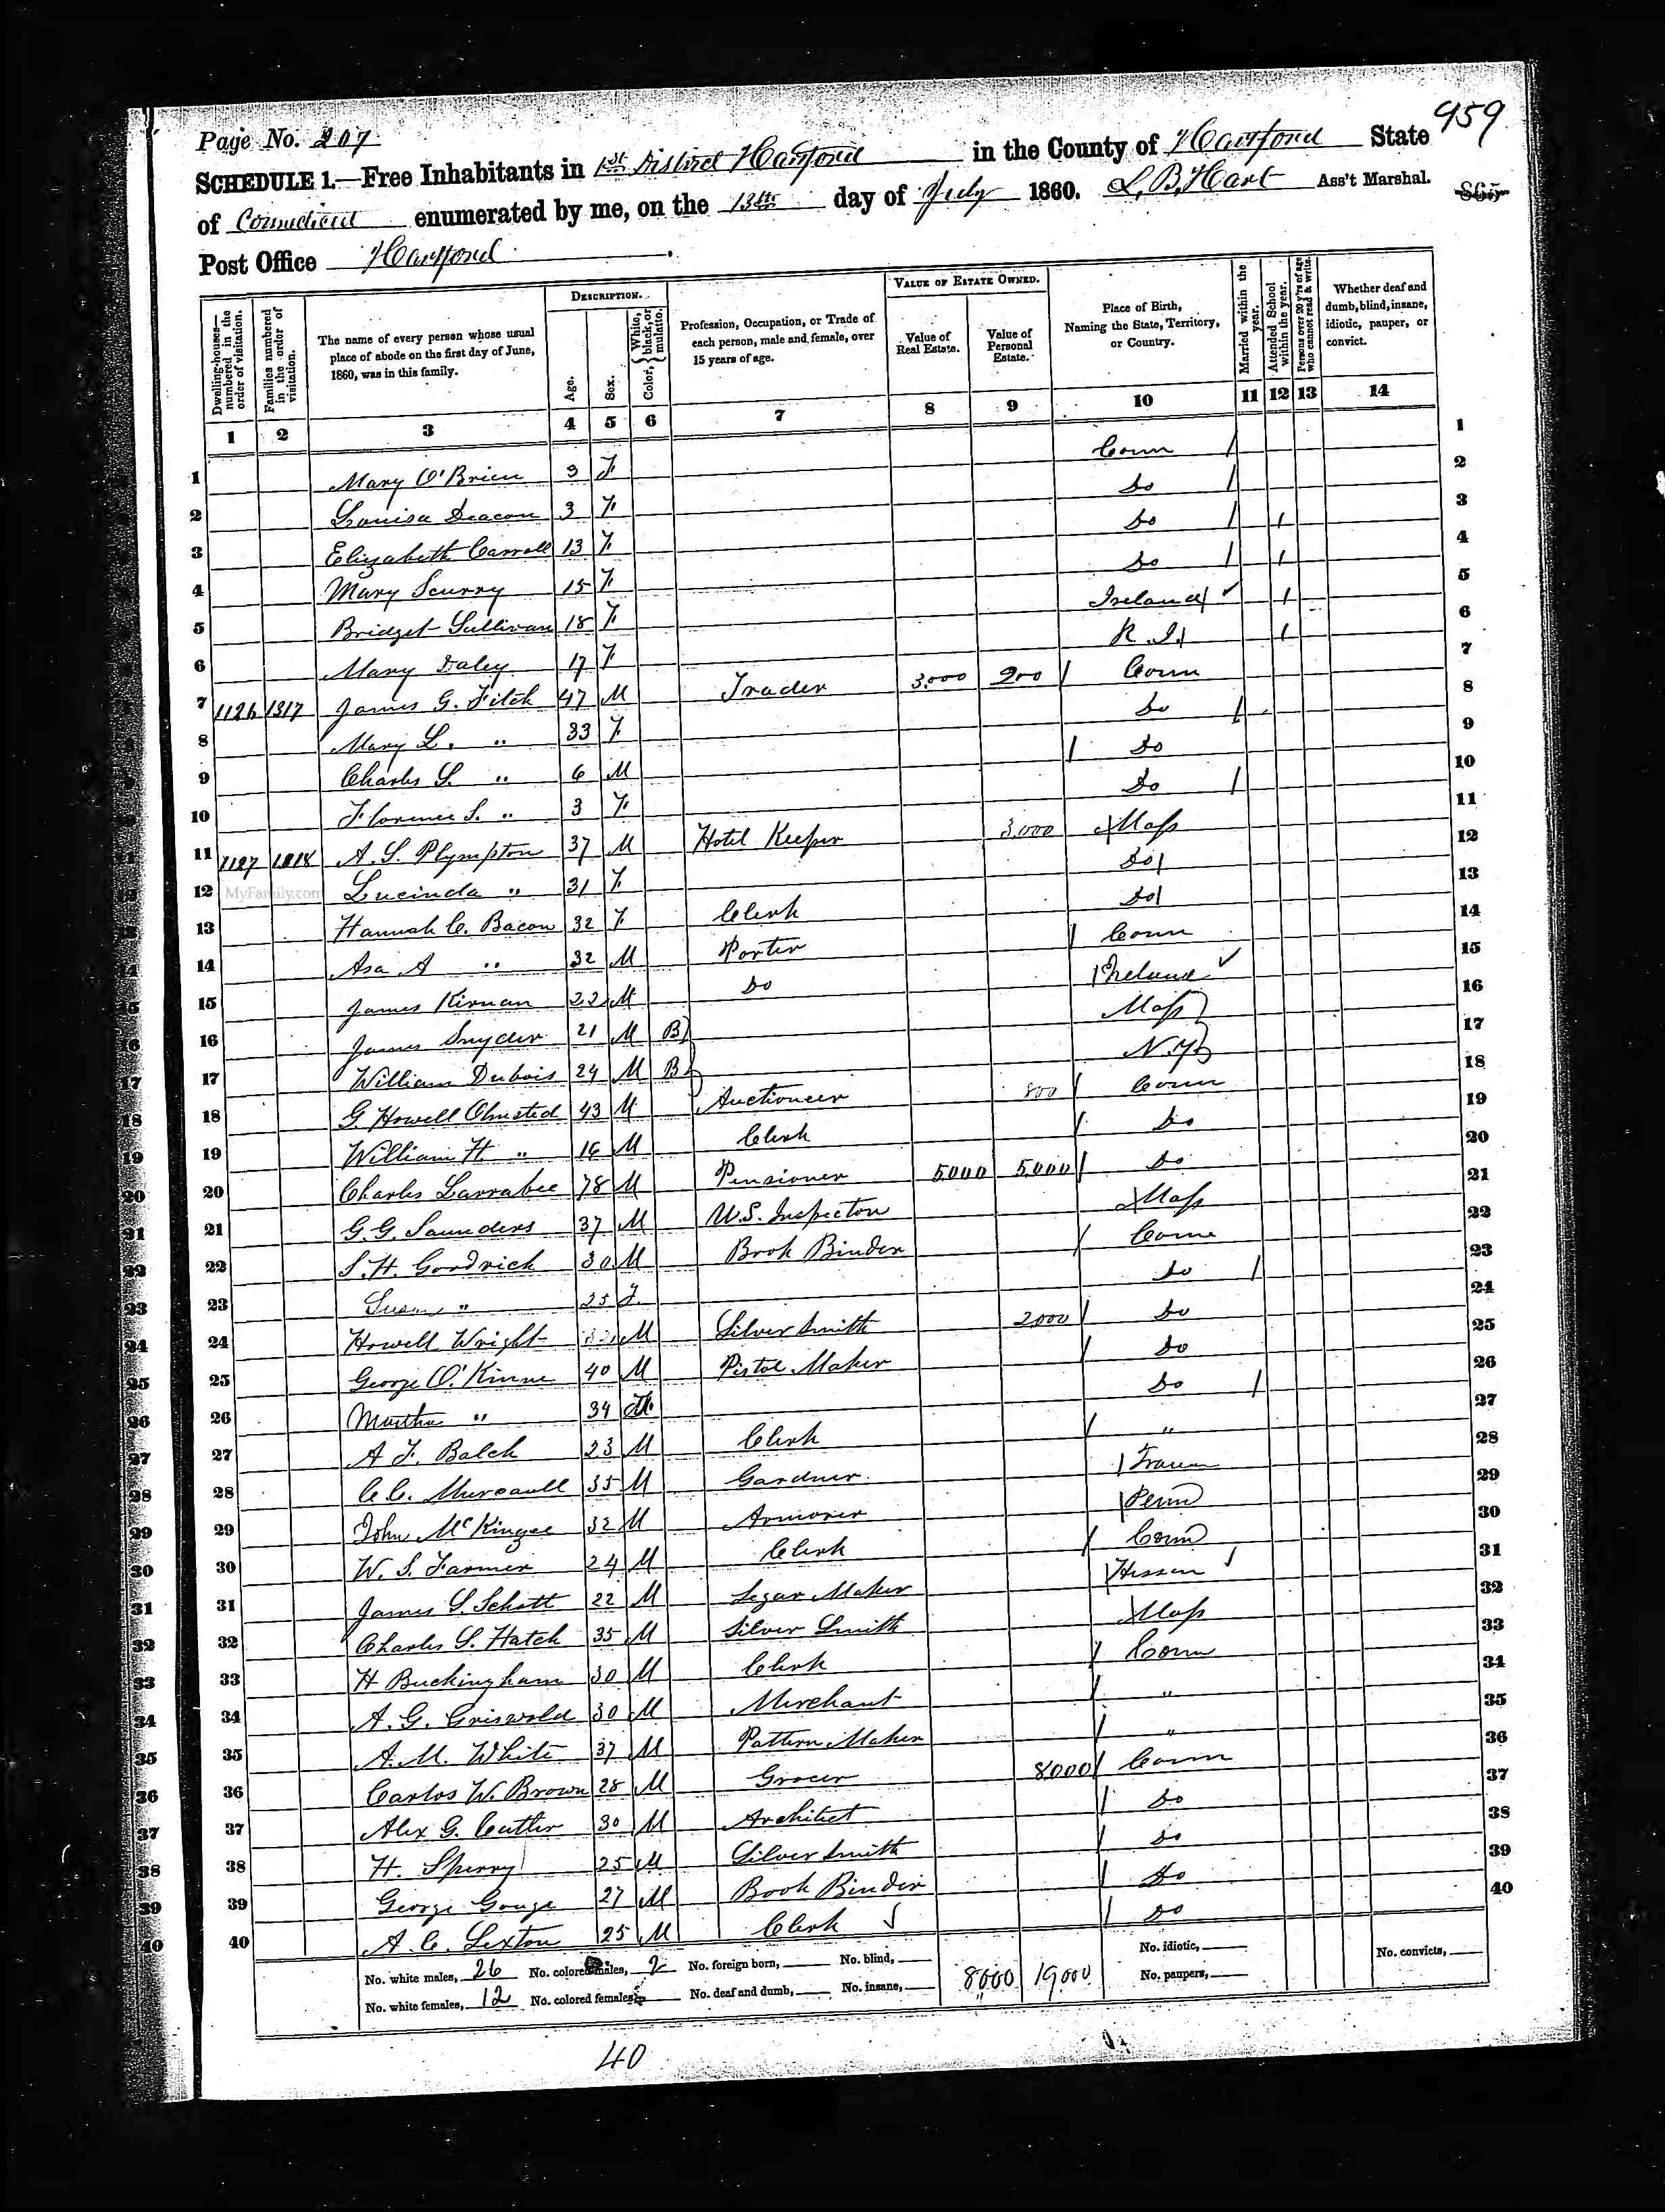 Page No. 207
959
SCHEDULE 1.—Free Inhabitants in 1st District Hartford in the County of Hartford State
of Connecticut enumerated by me, on the 13th day of July 1860. L. B. Hart Ass't Marshal.
865
Post Office Hartford.
Dwelling-houses—numbered in the order of visitation. Families numbered in the order of visitation. The name of every person whose usual place of abode on the first day of June, 1860, was in this family. DESCRIPTION. Age. Sex. Color, { White, black, or mulatto. Profession, Occupation, or Trade of each person, male and female, over 15 years of age. VALUE OF ESTATE OWNED. Value of Real Estate. Value of Personal Estate. Place of Birth, Naming the State, Territory, or Country. Married within the year. Attended School within the year. Persons over 20 y'rs of age who cannot read & write. Whether deaf and dumb, blind, insane, idiotic, pauper, or convict.
1 2 3 4 5 6 7 8 9 10 11 12 13 14
1 Mary O'Brien 3 F Conn / 1
2 Louisa Deacon 3 F Do / 2
3 Elizabeth Carroll 13 F Do / / 3
4 Mary Scurry 15 F Do / / 4
5 Bridget Sullivan 18 F Ireland / ✓ / 5
6 Mary Daley 17 F R.I. / / 6
7 1126 1317 James G. Fitch 47 M Trader 3,000 200 / Conn 7
8 Mary L. " 33 F Do / 8
9 Charles S. " 6 M / Do 9
10 Florence S. " 3 F Do / 10
11 1127 1318 A. S. Plympton 37 M Hotel Keeper 3,000 Mass 11
12 MyFamily.com Lucinda " 31 F Do / 12
13 Hannah C. Bacon 32 F Do / 13
14 Asa A " 32 M Clerk / Conn 14
15 James Kirnan 22 M Porter / Ireland ✓ 15
16 James Snyder 21 M B Do Mass 16
17 William Dubois 24 M B N.Y. 17
18 G. Howell Olmsted 43 M Auctioneer 800 / Conn 18
19 William H " 16 M Clerk / Do 19
20 Charles Larrabee 78 M Pensioner 5000 5,000 / Do 20
21 G. G. Saunders 37 M U.S. Inspector Mass 21
22 S. H. Goodrich 30 M Book Binder / Conn 22
23 Susan " 25 F. Do / 23
24 Howell Wright M Silver Smith 2,000 / Do 24
25 George O. Kinne 40 M Pistol Maker / Do 25
26 Martha " 34 Do / 26
27 A F. Balch 23 M Clerk / " 27
28 C. C. 35 M Gardner / France 28
29 John McKinzee 32 M Armorer / Penn 29
30 W. S. Farmer 24 M Clerk / Conn 30
31 James S. Schott 22 M Segar Maker / Hessen ✓ 31
32 Charles S. Hatch 35 M Silver Smith Mass 32
33 H Buckingham 30 M Clerk / Conn 33
34 A. G. Griswold 30 M Merchant / " 34
35 A. M. White 37 M Pattern Maker / " 35
36 Carlos W. Brown 28 M Grocer 8000 / Conn 36
37 Alex G. Cutler 30 M Architect / Do 37
38 H. Sperry 25 M Silver Smith / Do 38
39 George Gouge 27 M Book Binder / Do 39
40 A. C. Sexton 25 M Clerk ✓ / Do 40
No. white males, 26 No. colored males, 2 No. foreign born, No. blind, 8000 19,000 No. idiotic, No. convicts,
No. white females, 12 No. colored females, No. deaf and dumb, No. insane, No. paupers,
40